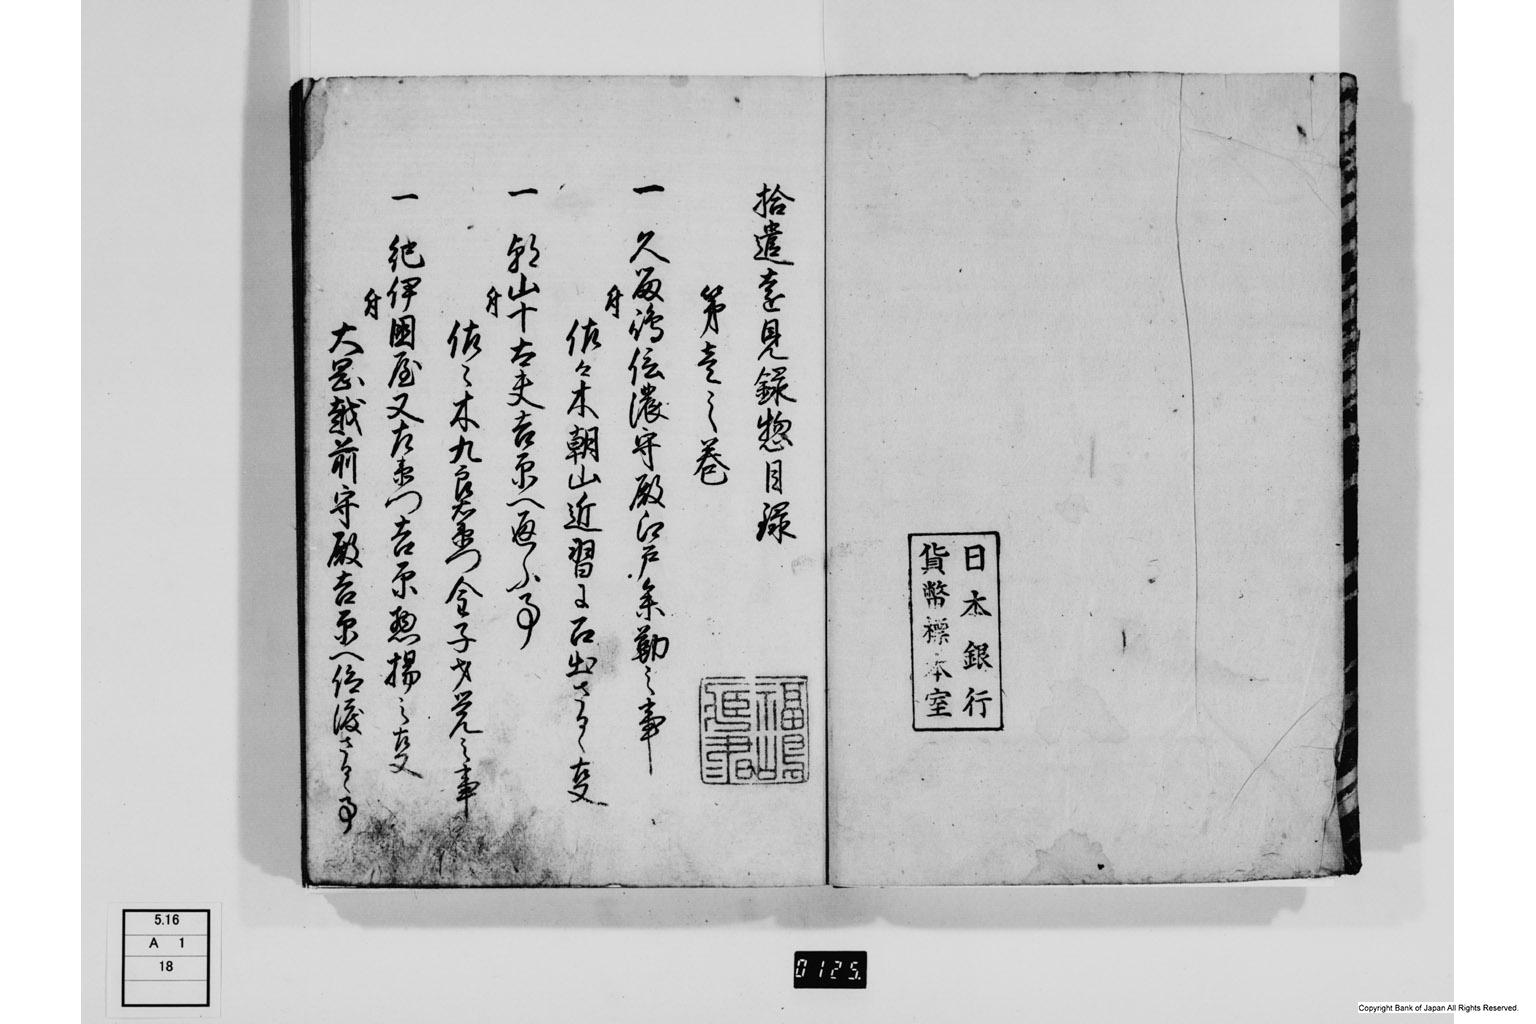 日本銀行
貨幣標本室
拾遺遠見録惣目録
第壱之巻
一 久留嶋信濃守殿江戸参勤之事
并 佐々木朝山近習に召出さるゝ事
一 朝山十太夫吉原へ通ふ事
并 佐々木九郎右衛門金子才覚之事
一 紀伊國屋又左衛門吉原惣揚之事
并 大岡越前守殿吉原へ被仰渡さるゝ事
5.16
A 1
18
0125.
Copyright Bank of Japan All Rights Reserved.